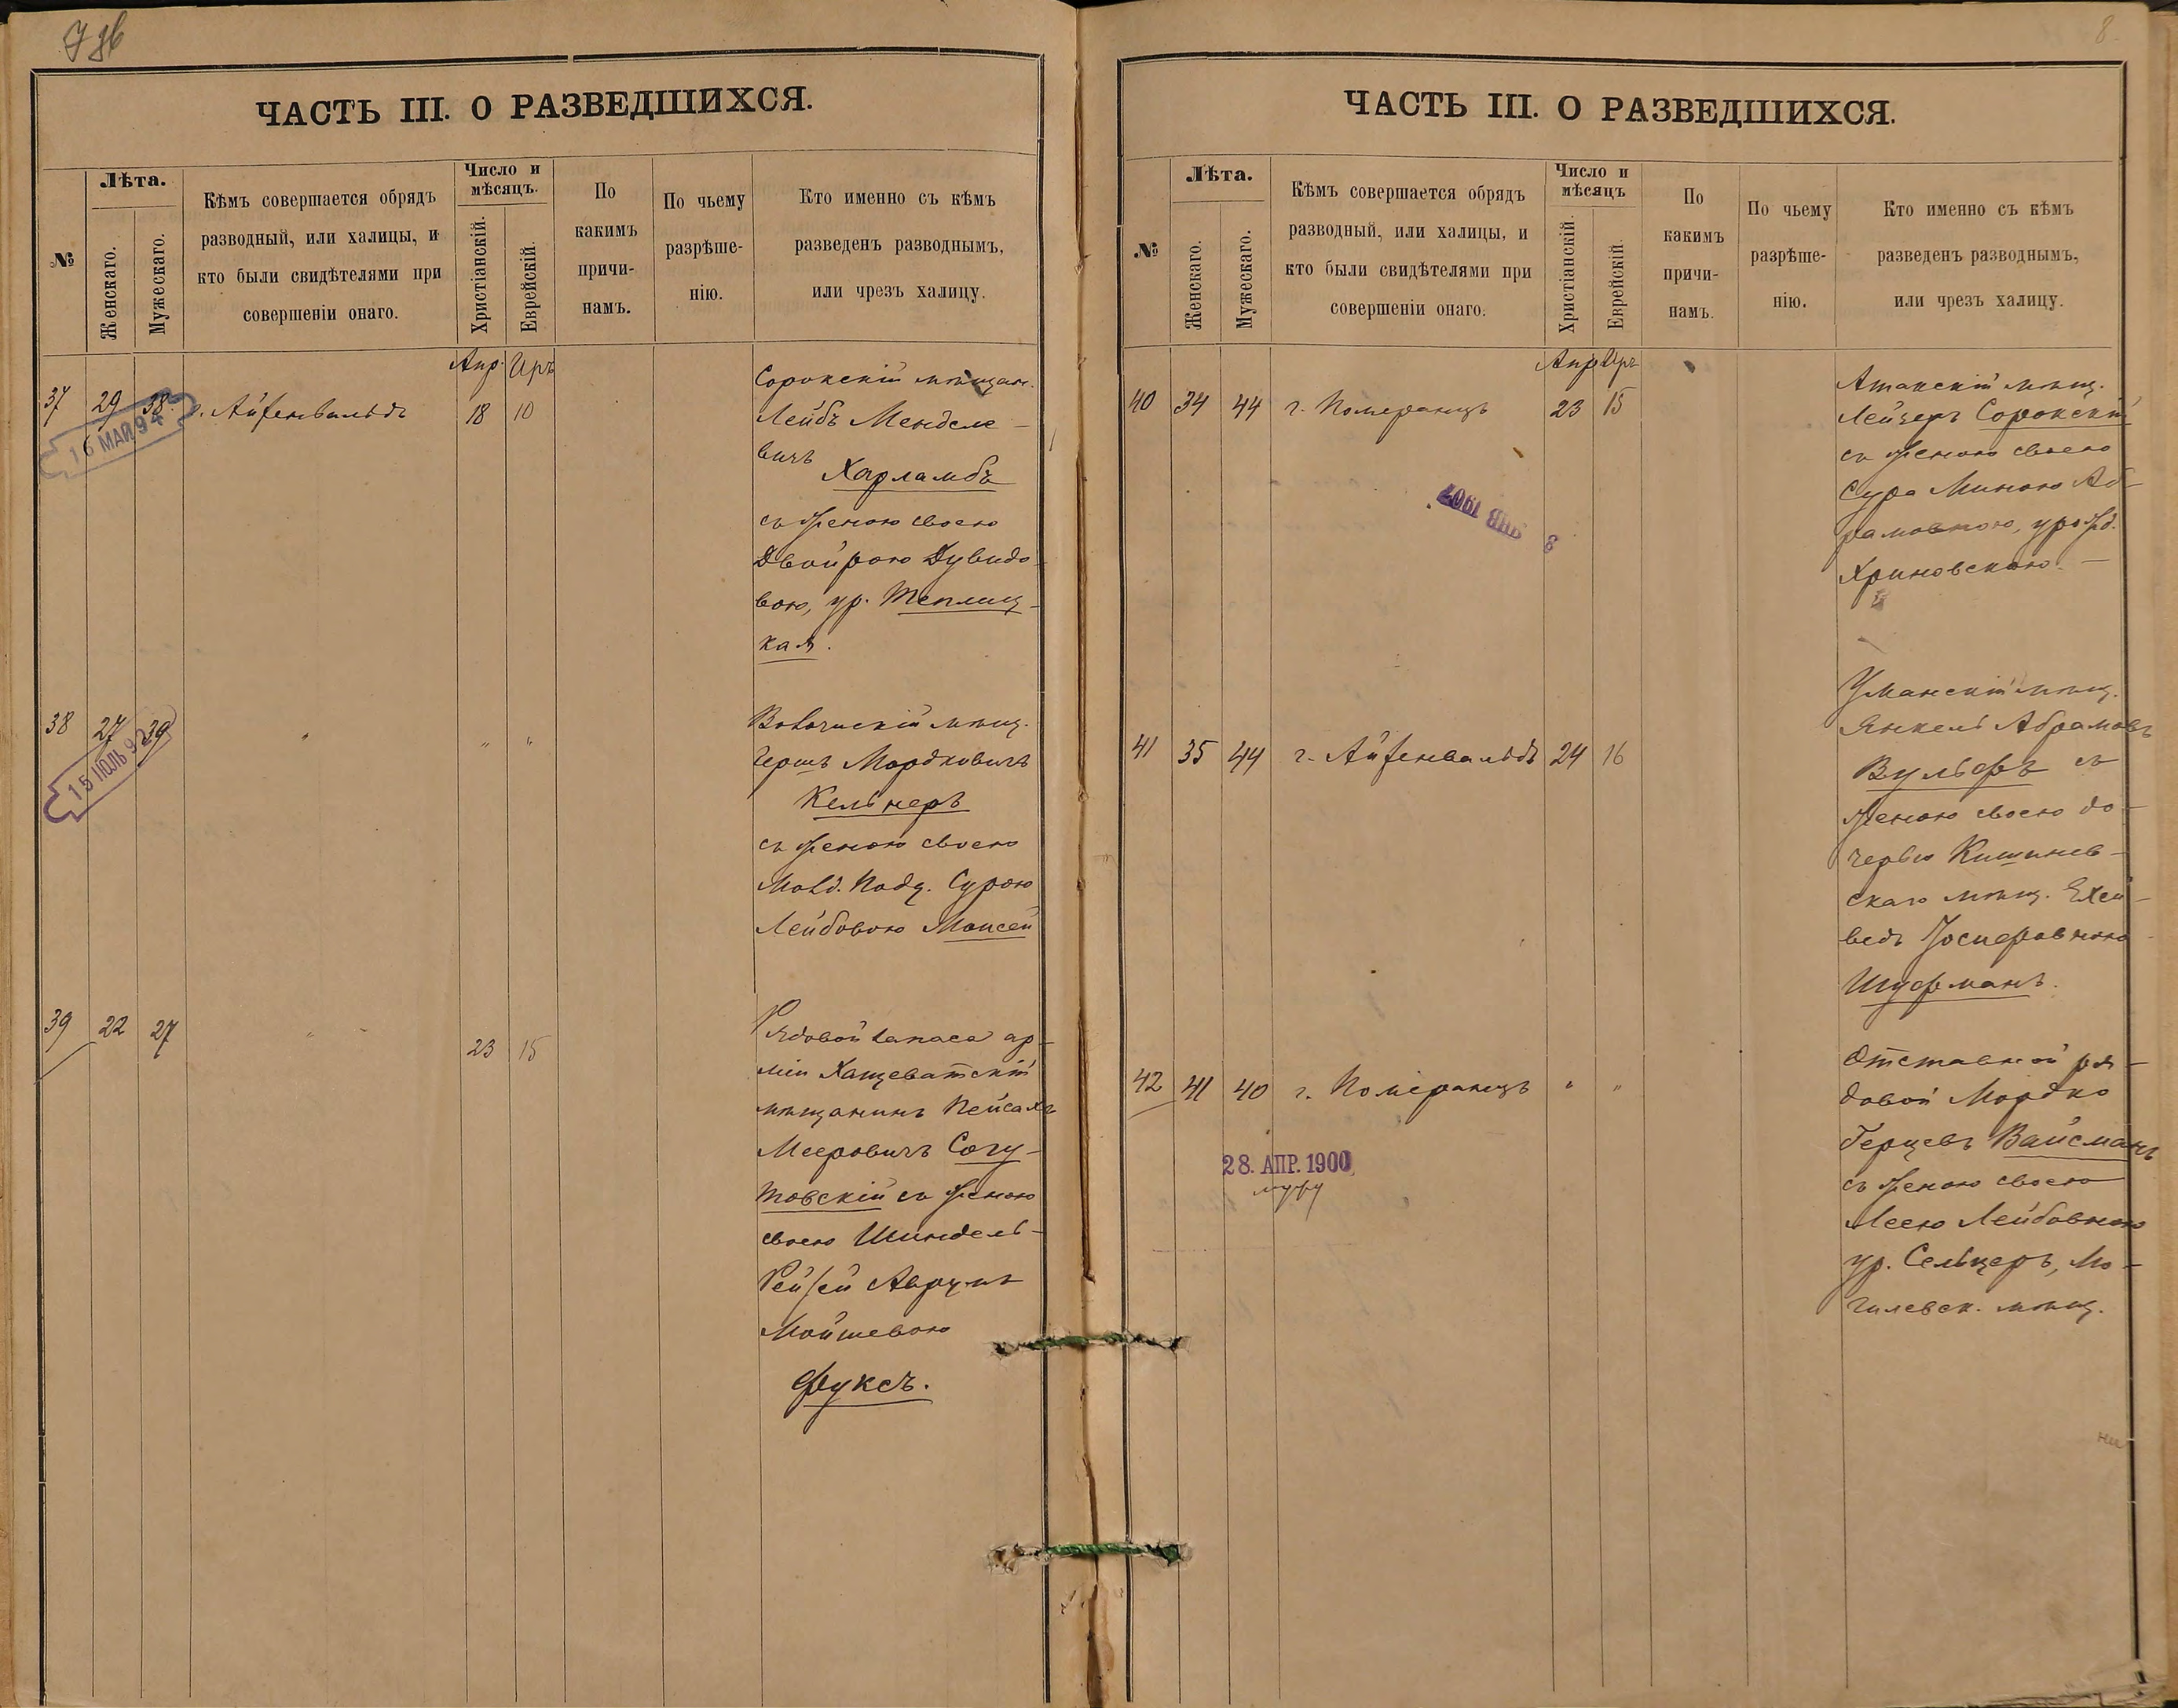 ЧАСТЬ III. О РАЗВЕДШИХСЯ.
№
Лѣта.
Женскаго.
Мужескаго.
Кѣмъ совершается обрядъ
разводный, или халицы, и
кто были свидѣтелями при
совершеніи онаго.
Число и
мѣсяцъ.
Христіанскій.
Еврейскій.
По
какимъ
причи-
намъ.
По чьему
разрѣше-
нію.
Кто именно съ кѣмъ
разведенъ разводнымъ,
или чрезъ халицу.
Апр. Иръ
37 29 38 г. Айзенвальдъ 18 10
16 МАЙ 94
Сорокскій мѣщан.
Лейбъ Менделе-
вичъ
Харламбъ
съ женою своею
Двойрою Дувидо-
вою, ур. Теплиц-
кая.
38 27 39 " " "
15 ІЮЛЬ 92
мѣщ.
Гершъ Мордковичъ
Кельнеръ
съ женою своею
Молд. Подд. Сурою
Лейбовою Моисей
39 22 27 " 23 15
Рядовой запаса ар-
міи Хащеватскій
мѣщанинъ Пейсахъ
Мееровичъ Согу-
товскій съ женою
своею Шиндель-
Рейзей Аврумъ
Мойшевою
Фуксъ.
8
ЧАСТЬ III. О РАЗВЕДШИХСЯ.
№
Лѣта.
Женскаго.
Мужескаго.
Кѣмъ совершается обрядъ
разводный, или халицы, и
кто были свидѣтелями при
совершеніи онаго.
Число и
мѣсяцъ
Христіанскій.
Еврейскій.
По
какимъ
причи-
намъ.
По чьему
разрѣше-
нію.
Кто именно съ кѣмъ
разведенъ разводнымъ,
или чрезъ халицу.
Апр Иръ
40 34 44 г. Померанцъ 23 15
8 ЯНВ 1907
Атакскій мѣщ.
Лейзеръ Сорокскій
съ женою своею
Сура Миною Аб-
рамовною, урожд.
Хриновскою. —
41 35 44 г. Айзенвальдъ 24 16
Уманскій мѣщ.
Янкель Абрамовъ
Вульфъ съ
женою своею до-
черью Кишинев-
скаго мѣщ. Ехей-
ведъ Іосиферовною
Шуфманъ.
42 41 40 г. Померанцъ " "
28. АПР. 1900
Отставной ря-
довой Мордко
Герцевъ Вайсманъ
съ женою своею
Леею Лейбовною
ур. Сельцеръ, Мо-
гилевск. мѣщ.